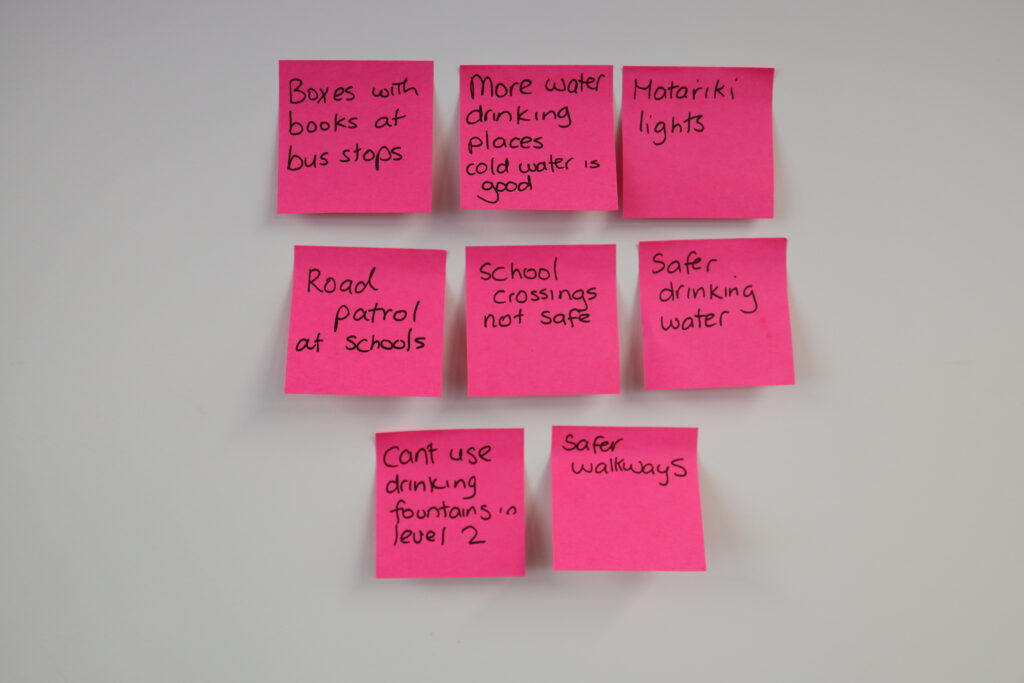 Boxes with
books at
bus stops
More water
drinking
places
cold water is
good
Matariki
lights
Road
patrol
at schools
School
crossings
not safe
Safer
drinking
water
Can't use
drinking
fountains in
level 2
Safer
walkways